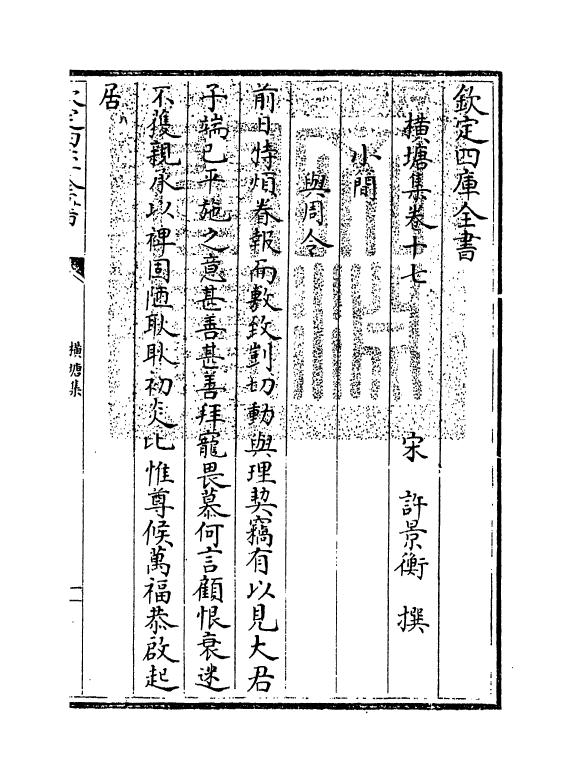 欽定四庫全書
橫塘集卷十七
宋 許景衡 撰
小簡
與周令
前日特煩眷報兩敷致剴切動與理契竊有以見大君
子端已平施之意甚善甚善拜寵畏慕何言顧恨衰迷
不獲親承以裨固陋耿耿初炎比惟尊候萬福恭啟起
居
橫塘集